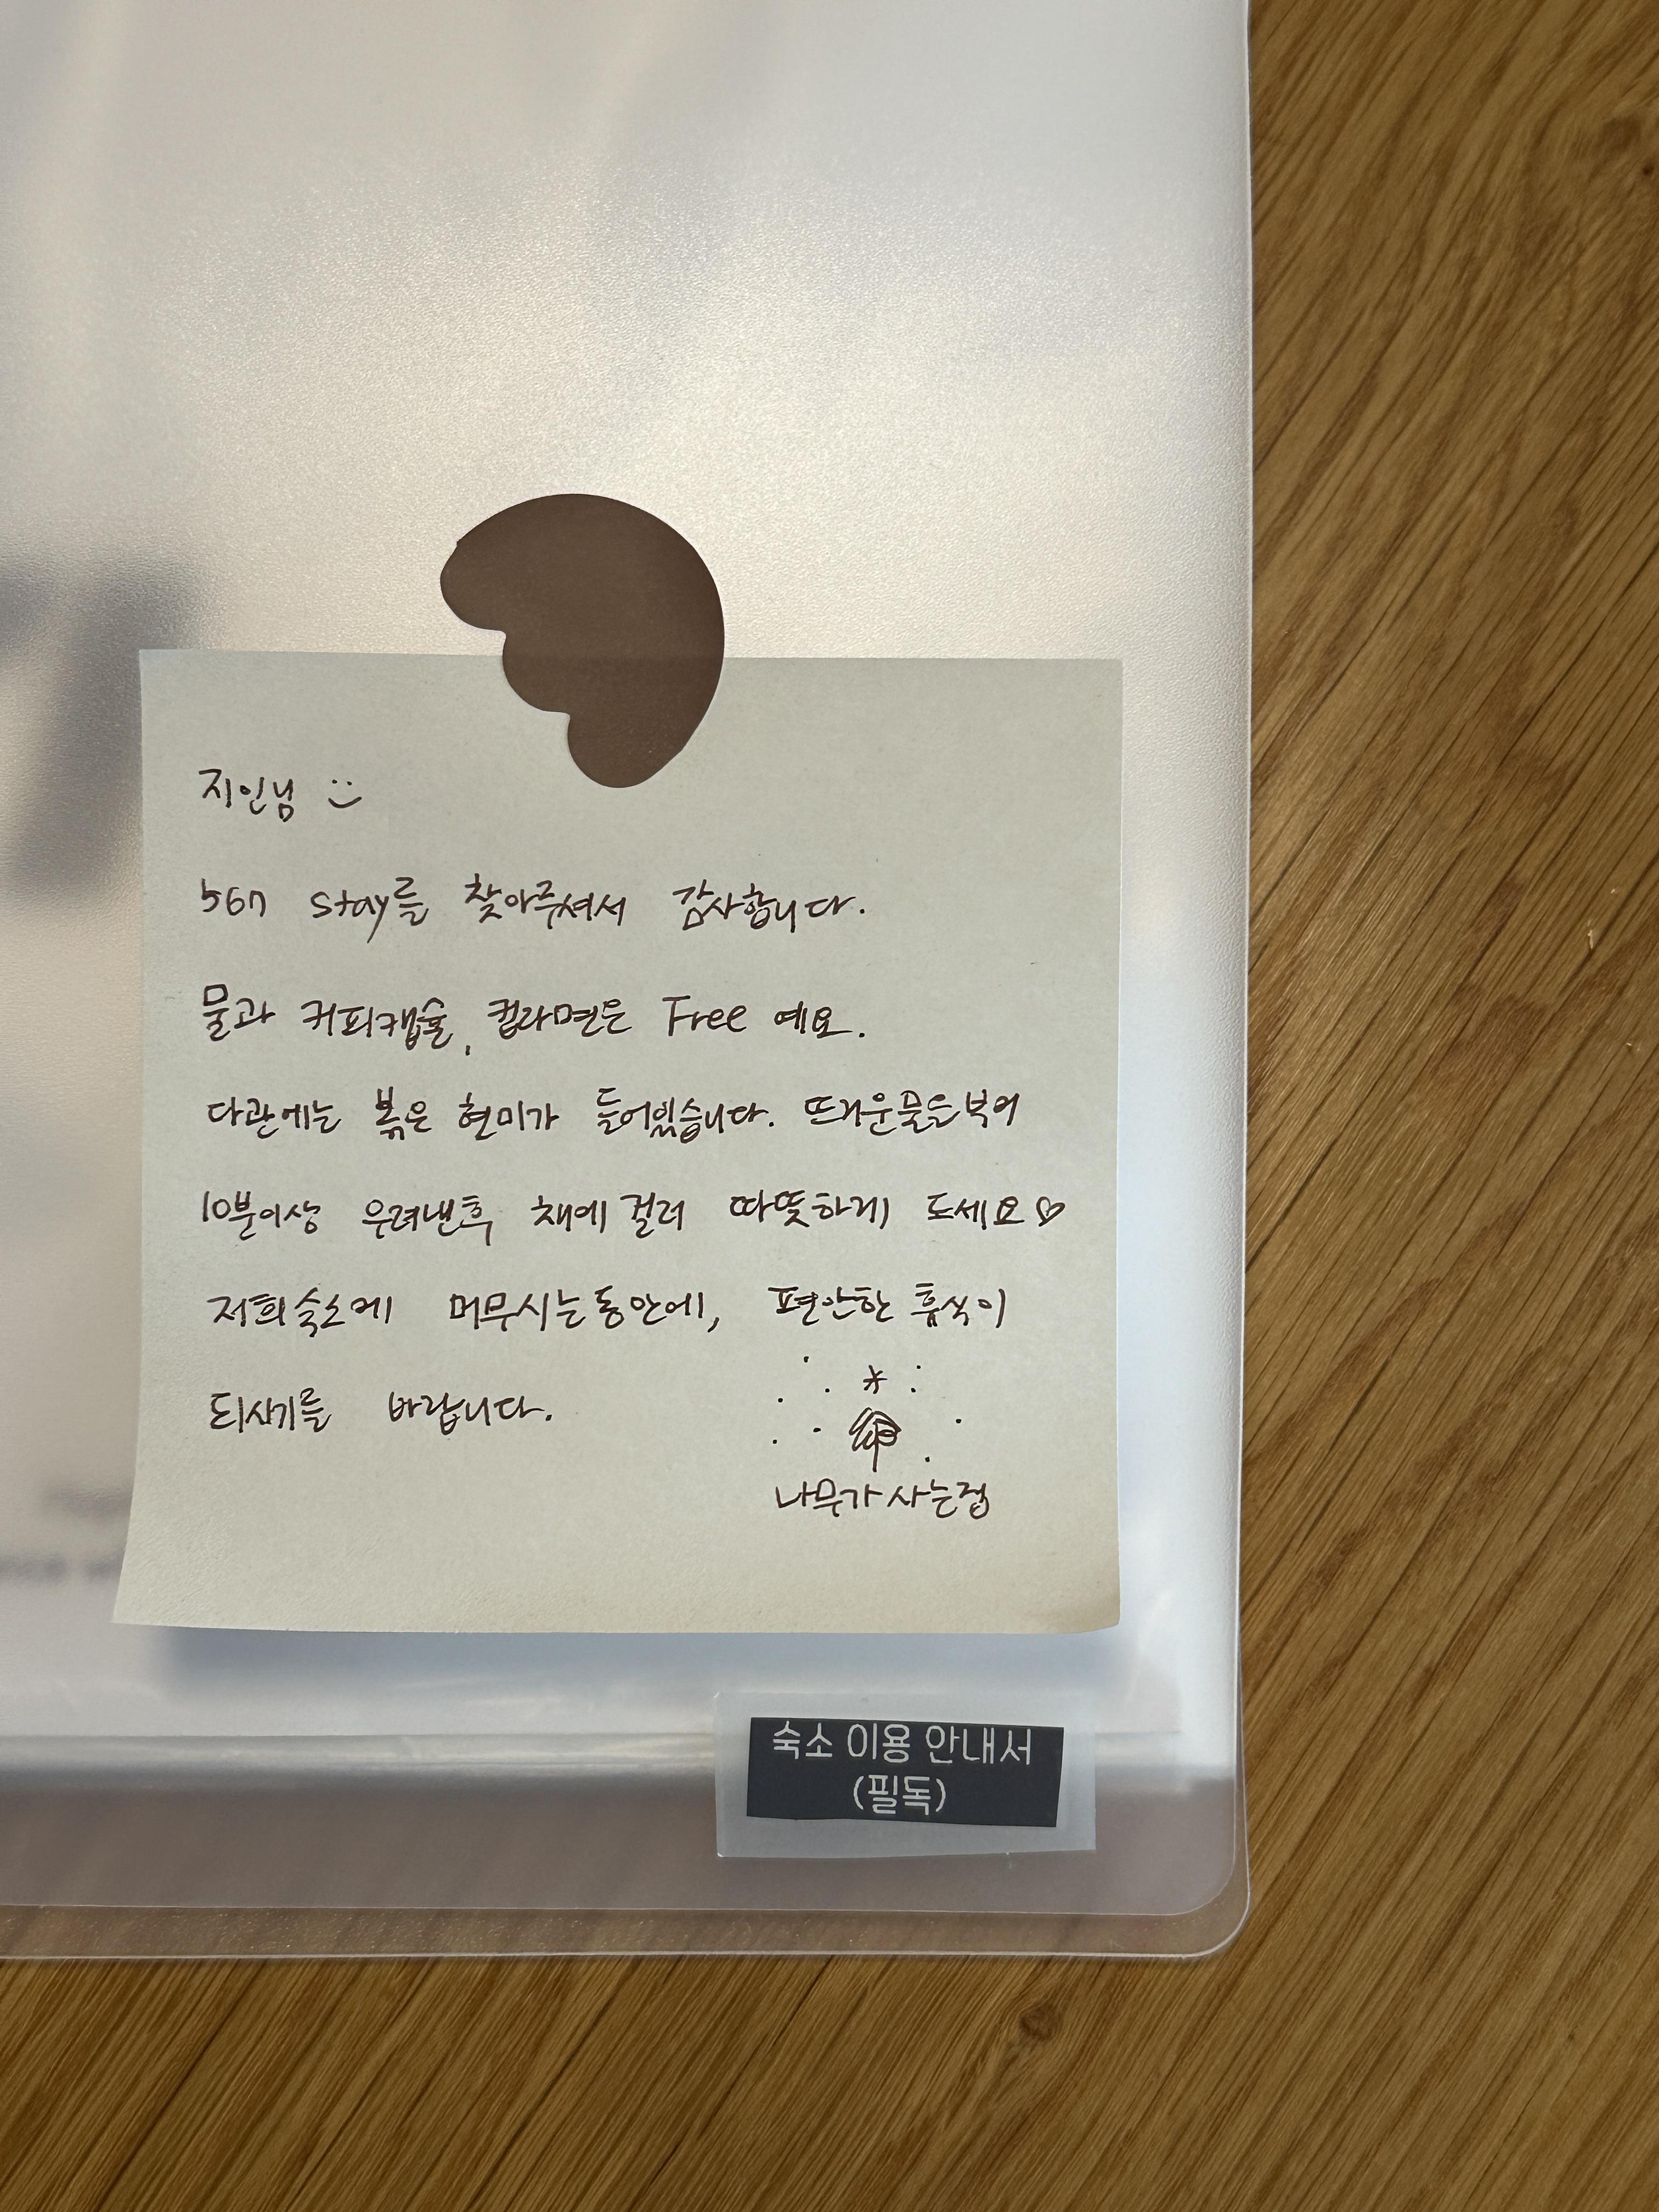 지인님
567 stay를 찾아주셔서 감사합니다.
물과 커피캡슐, 컵라면은 Free 예요.
다관에는 볶은 현미가 들어있습니다. 뜨거운물을 부어
10분이상 우려낸후 채에 걸러 따뜻하게 드세요♡
저희 숙소에 머무시는동안에, 편안한 휴식이
되시기를 바랍니다.
나무가 사는집
숙소 이용 안내서
(필독)